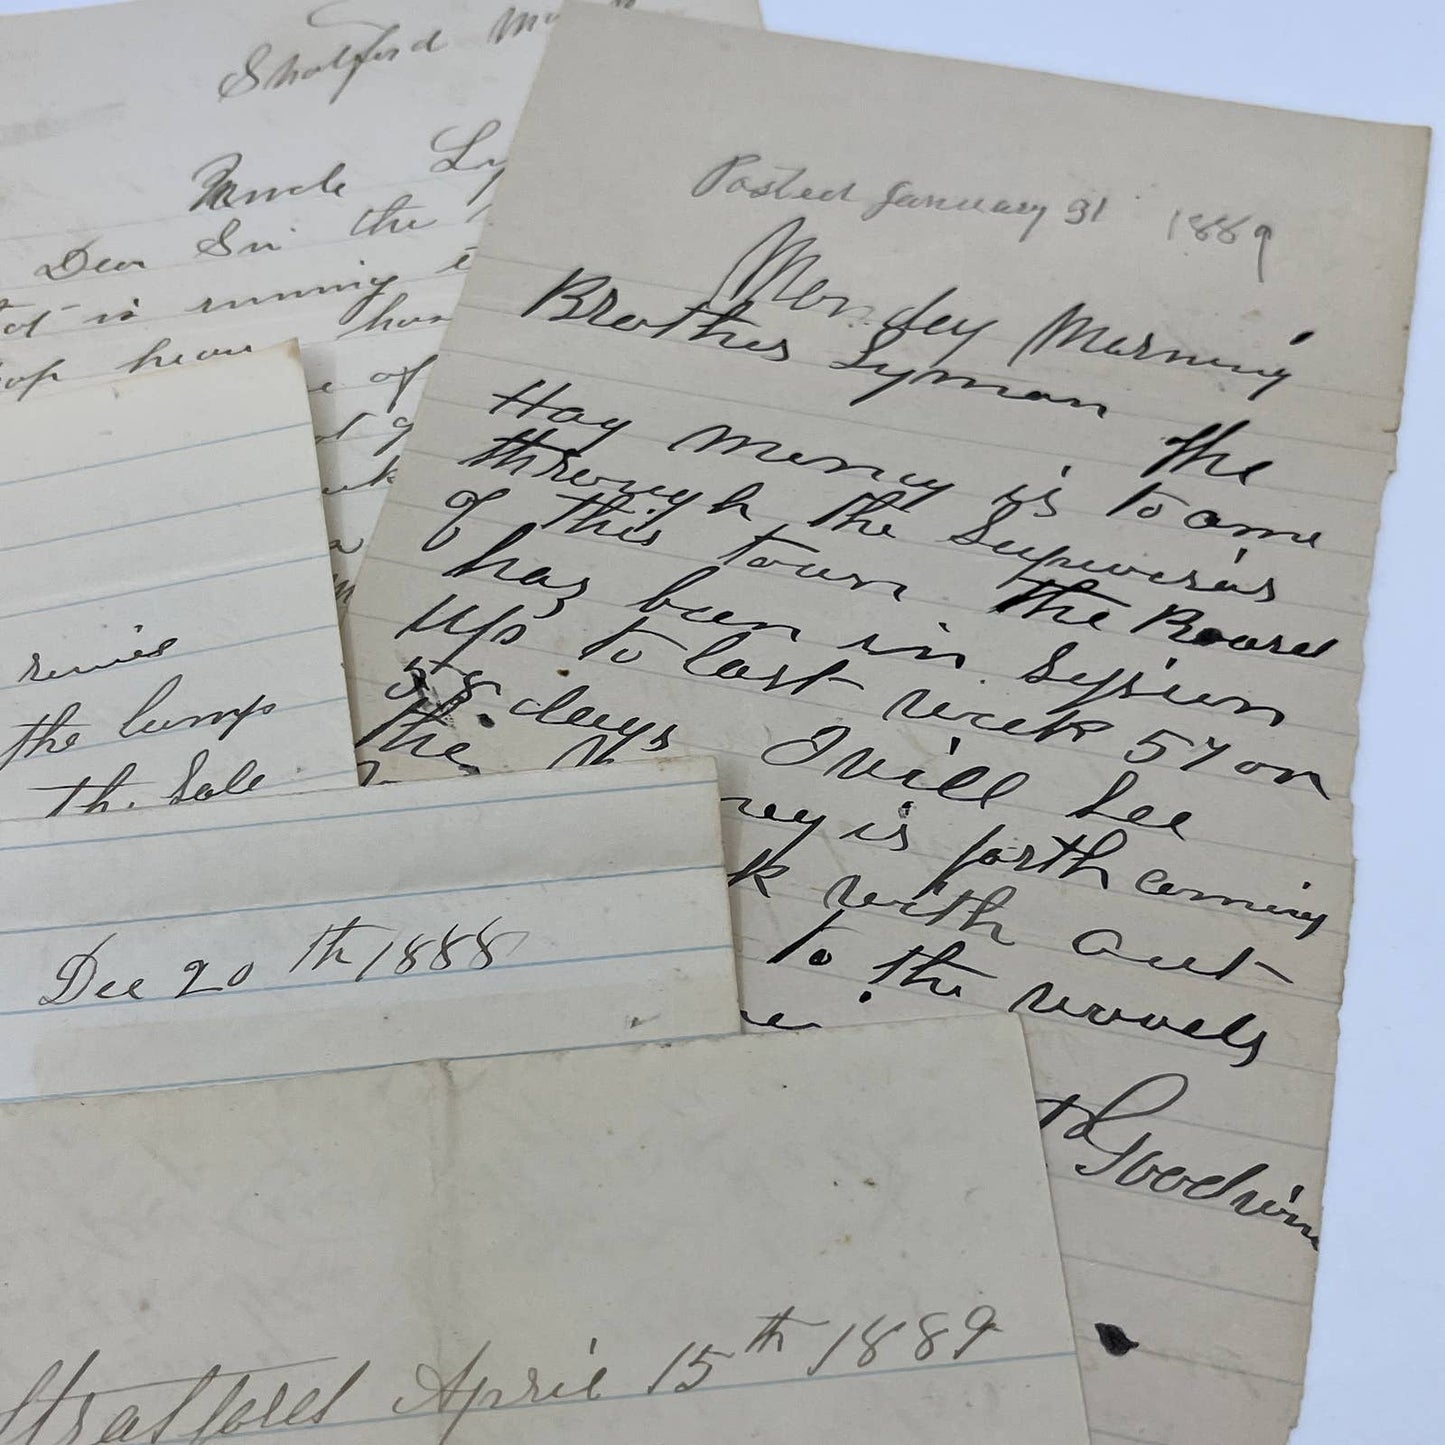 Stratford
Uncle
Dear Sir the
is running
hear
of
Posted January 31 1889
Monday Morning
Brother Lyman The
Hay money is to come
through the Supervisors
of this town The Board
has been in Session
up to last week 57 or
58 days I will See
the
is forthcoming
with out
to the
Goodwin
the lump
th. Sale
Dec 20th 1888
Stratford April 15th 1889